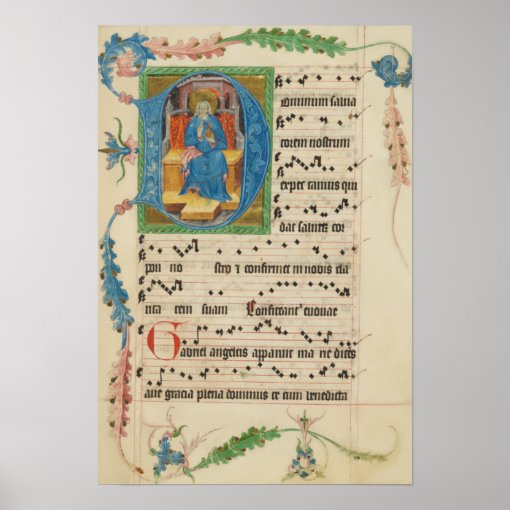 Dominum salva
torem nostrum
expectamus qui
dat salutem cor
pori no stro et confirmet in nobis cla
rita tem suam Confiteant' euouae
Gabriel angelus apparuit ma rie dicens
aue gracia plena dominus te cum benedicta